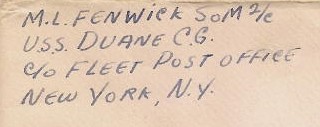 M.L. FENWICK SoM 2/c
U.S.S. DUANE C.G.
c/o FLEET POST OFFICE
NEW YORK, N.Y.